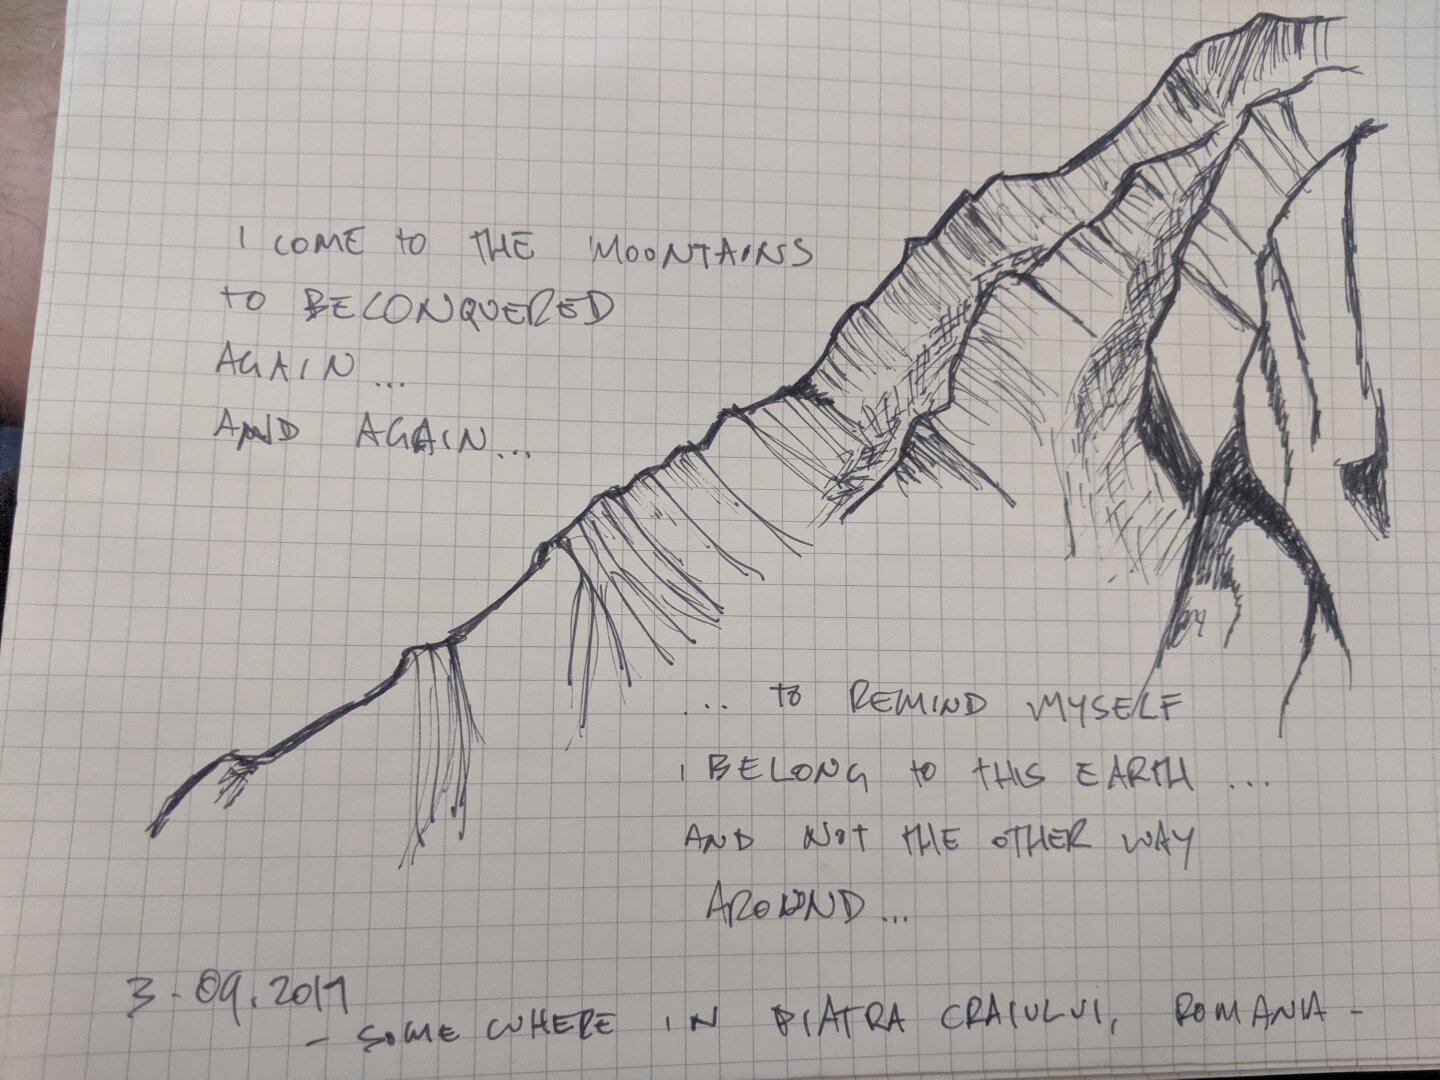 I COME TO THE MOUNTAINS
TO BE CONQUERED
AGAIN...
AND AGAIN...
... TO REMIND MYSELF
I BELONG TO THIS EARTH ...
AND NOT THE OTHER WAY
AROUND...
3-09.2019
- SOMEWHERE IN PIATRA CRAIULUI, ROMANIA -